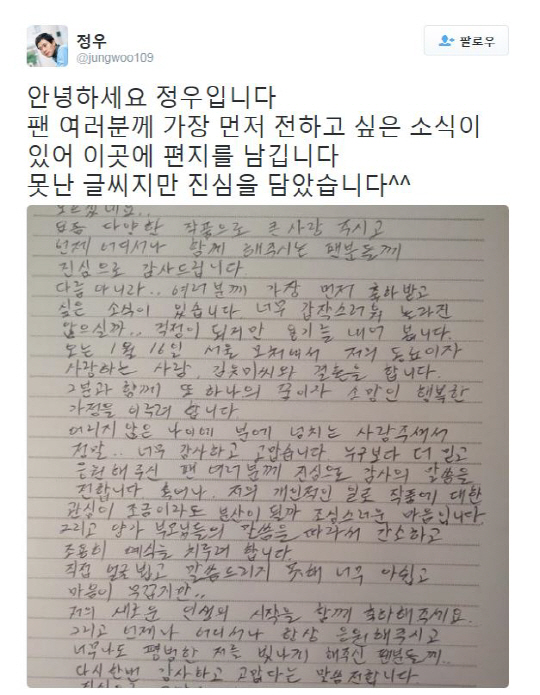 정우
@jungwoo109
팔로우
안녕하세요 정우입니다
팬 여러분께 가장 먼저 전하고 싶은 소식이
있어 이곳에 편지를 남깁니다
못난 글씨지만 진심을 담았습니다^^
다양한 작품으로 큰 사랑 주시고
언제 어디서나 함께 해주시는 팬분들께
진심으로 감사드립니다
다름 아니라.. 여러분께 가장 먼저 축하받고
싶은 소식이 있습니다. 너무 갑작스러워 놀라진
않으실까.. 걱정이 되지만 용기를 내어 봅니다.
오는 1월 16일 서울 모처에서 저의 동료이자
사랑하는 사람, 김유미씨와 결혼을 합니다.
그분과 함께 또 하나의 꿈이자 소망인 행복한
가정을 이루려 합니다
어리지 않은 나이에 분에 넘치는 사랑주셔서
정말.. 너무 감사하고 고맙습니다. 누구보다 더 믿고
응원해 주신 팬 여러분께 진심으로 감사의 말씀을
전합니다. 혹여나, 저의 개인적인 일로 작품에 대한
관심이 조금이라도 분산이 될까 조심스러운 마음입니다.
그리고 양가 부모님들의 말씀을 따라서 간소하고
조용히 예식을 치루려 합니다.
직접 얼굴 뵙고 말씀드리지 못해 너무 아쉽고
마음이 무겁지만..
저의 새로운 인생의 시작을 함께 축하해주세요.
그리고 언제나 어디서나 항상 응원해주시고
너무나도 평범한 저를 빛나게 해주신 팬분들께..
다시 한번 감사하고 고맙다는 말씀 전합니다